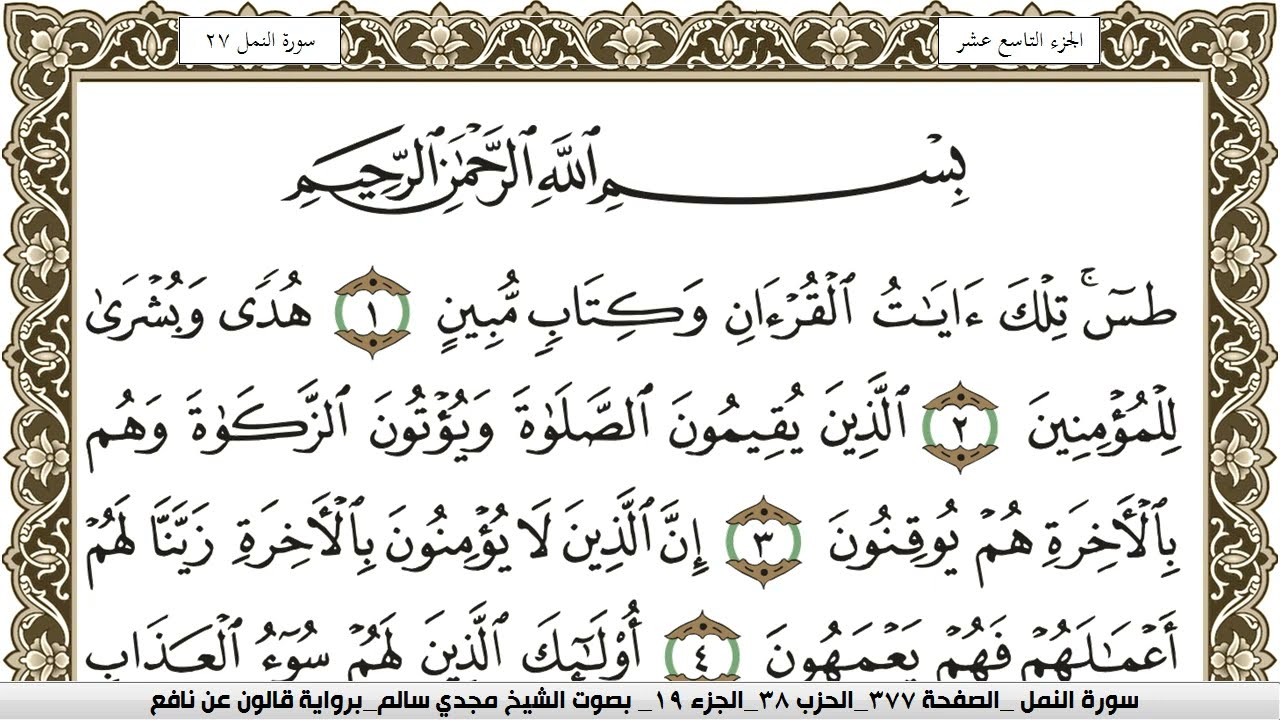 الجزء التاسع عشر
سورة النمل ٢٧
بِسْمِ ٱللَّهِ ٱلرَّحْمَٰنِ ٱلرَّحِيمِ
طسٓۚ تِلْكَ ءَايَٰتُ ٱلْقُرْءَانِ وَكِتَابٍ مُّبِينٍ ١ هُدًى وَبُشْرَىٰ
لِلْمُؤْمِنِينَ ٢ ٱلَّذِينَ يُقِيمُونَ ٱلصَّلَوٰةَ وَيُؤْتُونَ ٱلزَّكَوٰةَ وَهُم
بِٱلْأَخِرَةِ هُمْ يُوقِنُونَ ٣ إِنَّ ٱلَّذِينَ لَا يُؤْمِنُونَ بِٱلْأَخِرَةِ زَيَّنَّا لَهُمْ
أَعْمَٰلَهُمْ فَهُمْ يَعْمَهُونَ ٤ أُوْلَٰٓئِكَ ٱلَّذِينَ لَهُمْ سُوٓءُ ٱلْعَذَابِ
سورة النمل _الصفحة ٣٧٧_الحزب ٣٨_الجزء ١٩_ بصوت الشيخ مجدي سالم_برواية قالون عن نافع